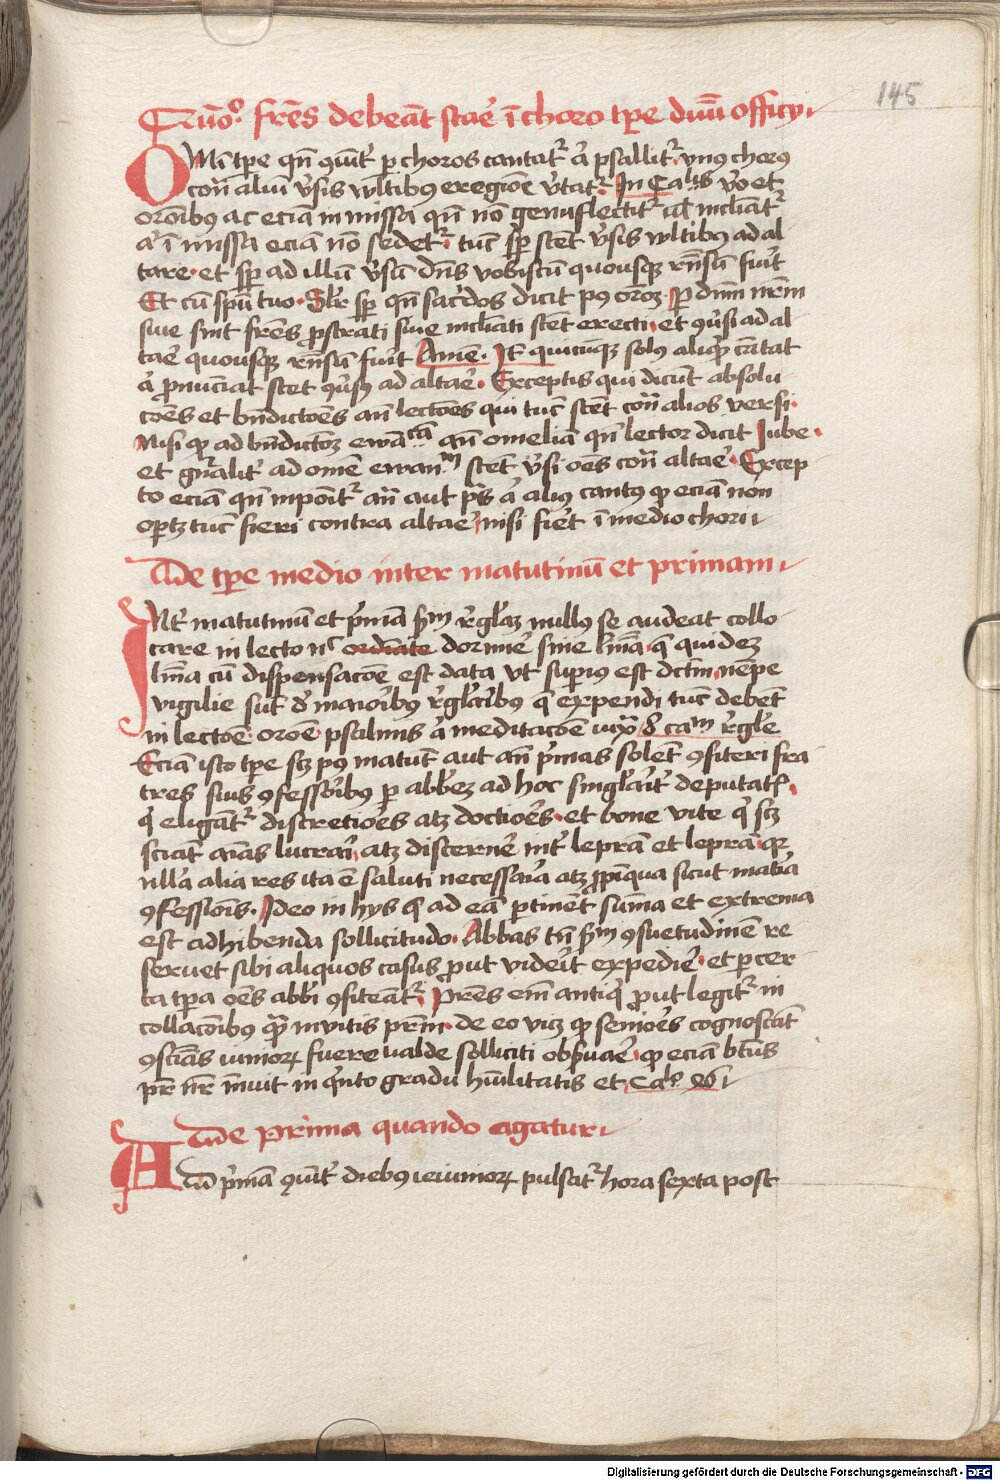 145
Quō° fr̄es debeāt stae᷑ ī choro tp̄e diuī officy
OMī tp̄e qn̄ ꝯūit᷑ ꝑ choros cantat᷑ a᷑ psallit᷑ vnꝰ chorꝰ
cont̄ aliū v̄sis vltibꝰ e regiōe v̄tat᷑ In Ca v̄o et
orōnibꝰ ac eciā in missa qn̄ nō genuflectit᷑ ul̄ inclīat᷑
a᷑ ī missa eciā nō sedet᷑ tūc sp̄ stēt v̄sis vltibꝰ ad al
tare et sp̄ ad illū v̄sū dn̄s vobiscū quousqꝫ rn̄sū fūit
Et cū spū tuo Sīlr sp̄ qn̄ sac᷑dos dicit pꝰ orōꝫ P dn̄m nr̄m
siue sint fr̄es ꝓstrati siue inclīati stēt erecti et ꝯu᷑si ad al
tae᷑ quousqꝫ rn̄sū fūit Amē It̄ quicūqꝫ solꝰ aliqͥd cātat
a᷑ ꝓnūciat stet ꝯu᷑sꝰ ad altae᷑ Exceptis qui dicūt absolu
cōes et bn̄dictōes an̄ lectōes qui tūc stēt cont̄ alios versi
Nisi qꝫ ad bn̄dictōꝫ ewā an̄ omeliā qn̄ lector dicit Jube
et gn̄alit᷑ ad omē ewan stēt v̄si oēs cont̄ altae᷑ Excep
to eciā qn̄ inponit᷑ an̄ aut pˢ a᷑ aliꝰ cantꝰ qꝫ eciā non
oꝑtꝫ tūc fieri contra altae᷑ nisi fiēt ī medio chori
De tp̄e medio inter matutinū et primam
INt᷑ matutinū et p͛mā sm̄ r᷑glāꝫ nullꝰ se audeat collo
care in lecto nͨ ordinate dormīe᷑ sine līma qͣ quideꝫ
līma cū dispensacōe est data vt supiꝰ est dc̄m nēpe
vigilie sūt d᷑ maioībꝰ r᷑glāībꝰ qͣ expendi tūc debēt
in lectōe orōe psalmis a᷑ meditacōe iuxͣ 8 caᵐ r᷑gle
Eciā isto tp̄e scꝫ pꝰ matut̄ aut an̄ p͛mas solēt ꝯfiteri fra
tres suis ꝯfessoībꝰ ꝑ abbēꝫ ad hoc singlāit᷑ deputat᷑
qͥ eligāt᷑ discretioēs atqꝫ doctioēs et bone vite qͥ scꝫ
sciāt aīas lucrai᷑ atqꝫ discerne᷑ int᷑ leprā et leprā qꝛ
nllā alia res ita ē saluti necessaīa atqꝫ ꝓpīqua sicut matīa
ꝯfessionis Ideo in hys qͣ ad eā ꝑtinēt suma et extrema
est adhibenda sollicitudo Abbas tn̄ sm̄ ꝯsuetudinē re
seruet sibi aliquos casus ꝓut vide᷑it expedie᷑ et ꝑ cer
ta tp̄a oēs abbi ꝯfiteāt᷑ Pr̄es em̄ antiqͥ ꝓut legit᷑ in
collacōibꝰ qͦꝫ in vitis pr̄m de eo vicꝫ qꝫ senioēs cognoscāt
ꝯsciās iunioꝝ fuere valde solliciti obs̄uae᷑ qꝫ eciā btūs
pr̄ nr̄ inuit in qͥnto gradu hūilitatis et Ca 46
De prima quando agatur
AD p͛mā ꝯūit᷑ diebꝰ ieiunioꝝ pulsat᷑ hora sexta post
Digitalisierung gefördert durch die Deutsche Forschungsgemeinschaft - DFG